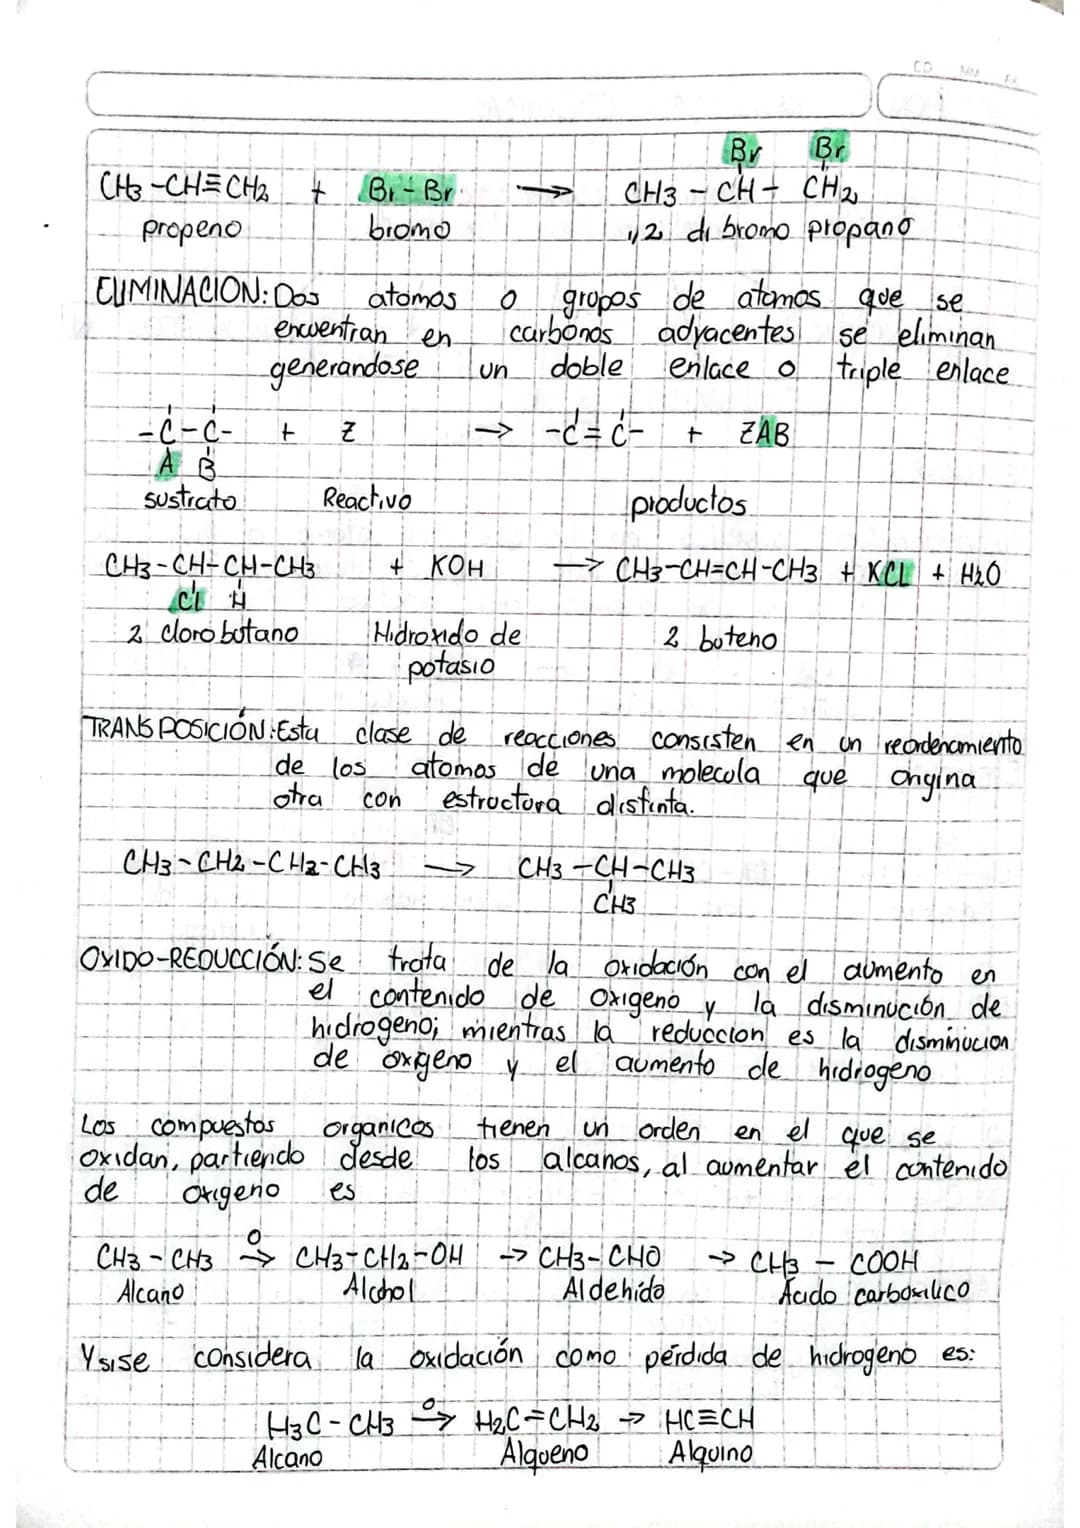 CD MM AA
Br Br
CH3 -CH≡CH2 + Br - Br → CH3 - CH - CH2
propeno bromo 1,2 di bromo propano
ELIMINACION: Dos atomos o grupos de atomos que se
encuentran en carbonos adyacentes se eliminan
generandose un doble enlace o triple enlace
-C-C- + Z → -C=C- + ZAB
A B
sustrato Reactivo productos
CH3-CH-CH-CH3 + KOH → CH3-CH=CH-CH3 + KCL + H2O
Cl H
2 clorobutano Hidroxido de 2 buteno
potasio
TRANSPOSICIÓN: Esta clase de reacciones consisten en un reordenamiento
de los atomos de una molecula que origina
otra con estructura distinta.
CH3-CH2-CH2-CH3 → CH3-CH-CH3
CH3
OXIDO-REDUCCIÓN: Se trata de la oxidación con el aumento en
el contenido de oxigeno y la disminución de
hidrogeno; mientras la reduccion es la disminucion
de oxigeno y el aumento de hidrogeno
Los compuestos organicos tienen un orden en el que se
oxidan, partiendo desde los alcanos, al aumentar el contenido
de oxigeno es
O
CH3-CH3 → CH3-CH2-OH → CH3-CHO → CH3 - COOH
Alcano Alcohol Aldehido Acido carboxilico
Y si se considera la oxidación como pérdida de hidrogeno es:
O
H3C-CH3 → H2C=CH2 → HC≡CH
Alcano Alqueno Alquino